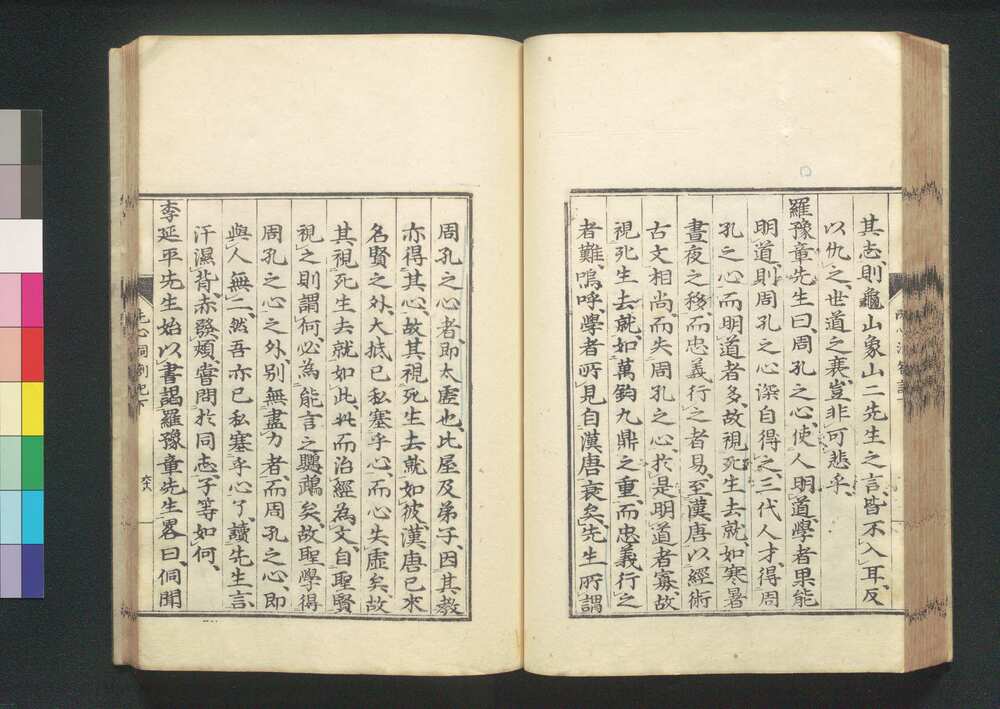 其志、則龜山象山二先生之言、皆不入耳、反
以仇之、世道之衰、豈非可悲乎、
羅豫章先生曰、周孔之心、使人明道、學者果能
明道、則周孔之心深自得之、三代人才、得周
孔之心、而明道者多、故視死生去就、如寒暑
晝夜之移、而忠義行之者易、至漢唐以經術
古文相尚、而失周孔之心、於是明道者寡、故
視死生去就、如萬鈞九鼎之重、而忠義行之
者難、嗚呼、學者所見、自漢唐衰矣、先生所謂
周孔之心者、即太虛也、比屋及弟子、因其教
亦得其心、故其視死生去就如彼、漢唐已來
名賢之外、大抵已私塞乎心、而心失虛矣、故
其視死生去就如此、此而治經為文、自聖賢
視之則謂何、必為能言之鸚鵡矣、故聖學得
周孔之心之外、別無盡力者、而周孔之心、即
與人無二、然吾亦已私塞乎心了、讀先生言、
汗濕背、赤發頰、嘗問於同志、子等如何、
李延平先生始以書謁羅豫章先生、畧曰、侗聞
洗心洞劄記下
六十六